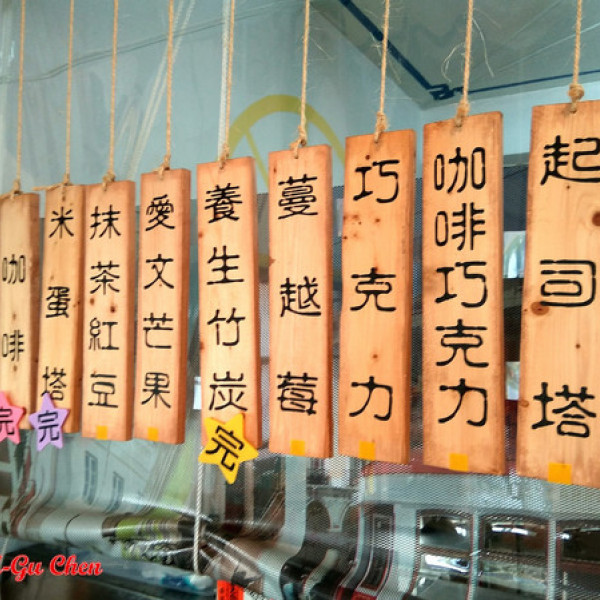 起司塔
咖啡巧克力
巧克力
蔓越莓
養生竹炭
完
愛文芒果
抹茶紅豆
米蛋塔
完
咖啡
完
-Gu Chen